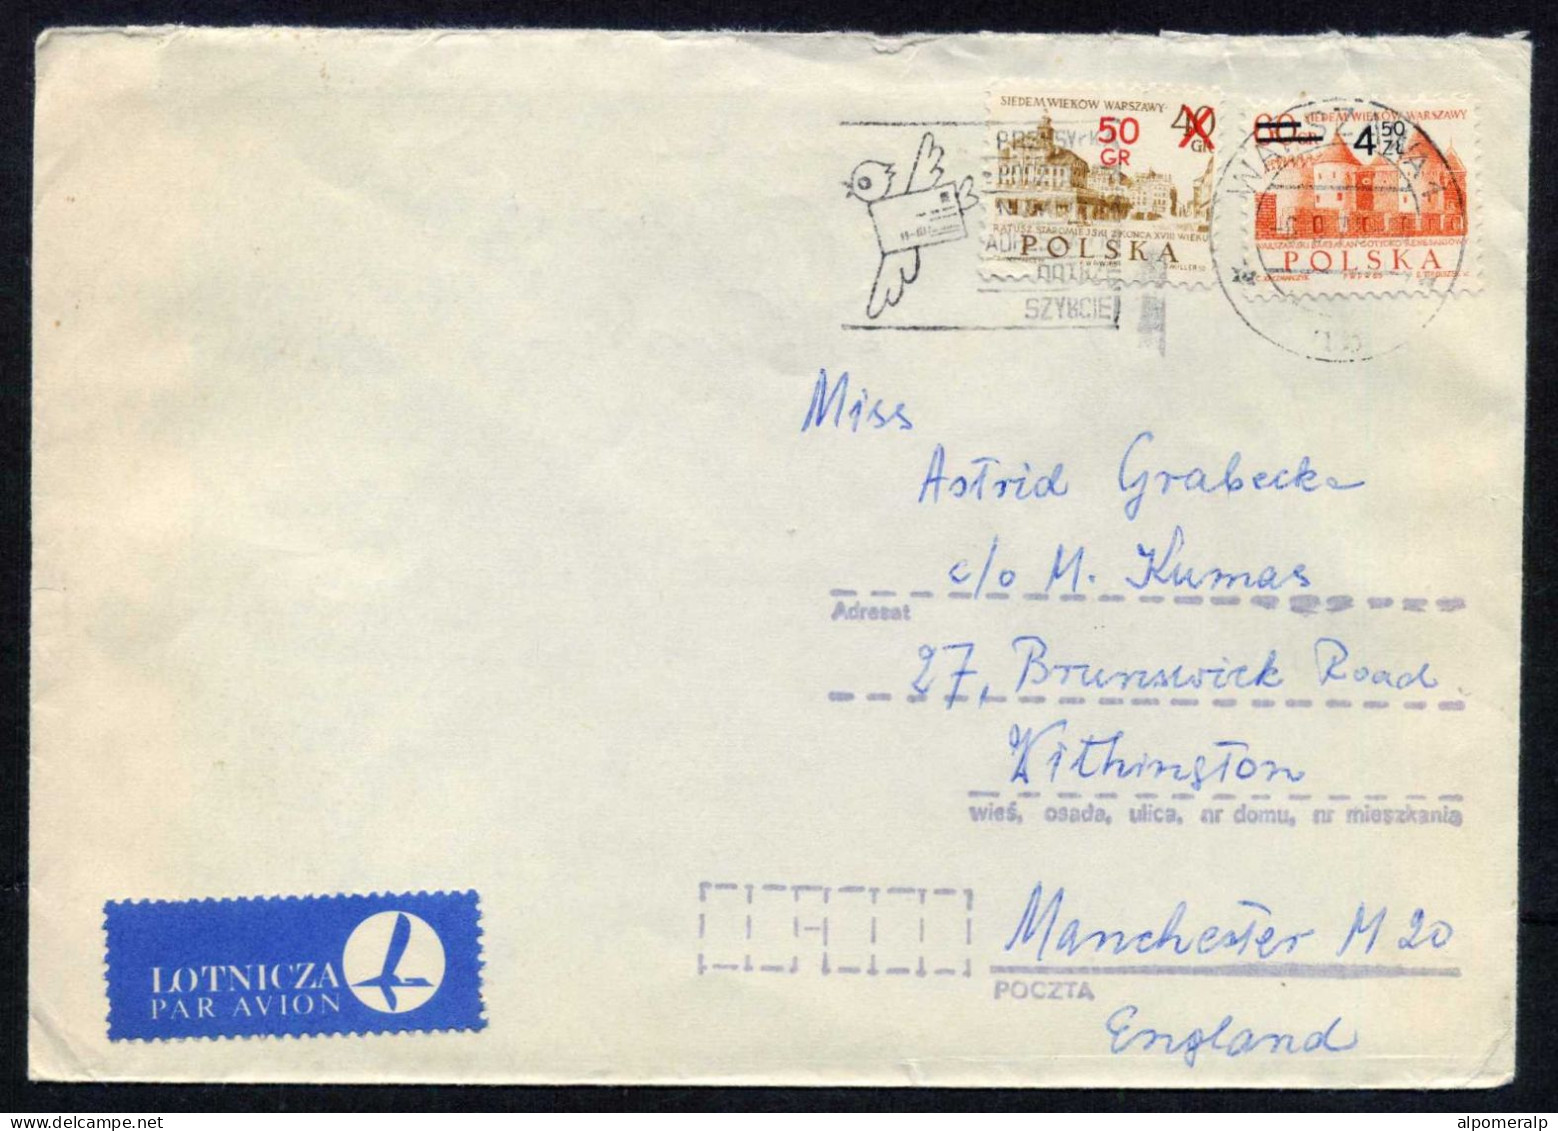 SIEDEM WIEKÓW WARSZAWY
50 GR
40 GR
RATUSZ STAROMIEJSKI Z KOŃCA XVIII WIEKU
POLSKA
SIEDEM WIEKÓW WARSZAWY
60 GR
4 50 ZŁ
POLSKA
WARSZAWA 1
SZYBCIEJ
Miss
Astrid Grabecka
c/o M. Kumas
Adresat
27, Brunswick Road
Withington
wieś, osada, ulica, nr domu, nr mieszkania
Manchester M 20
POCZTA
England
LOTNICZA
PAR AVION
alpomeralp